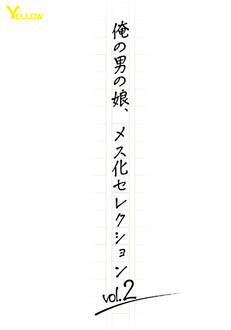 YELLOW
俺の男の娘、メス化セレクション
vol.2